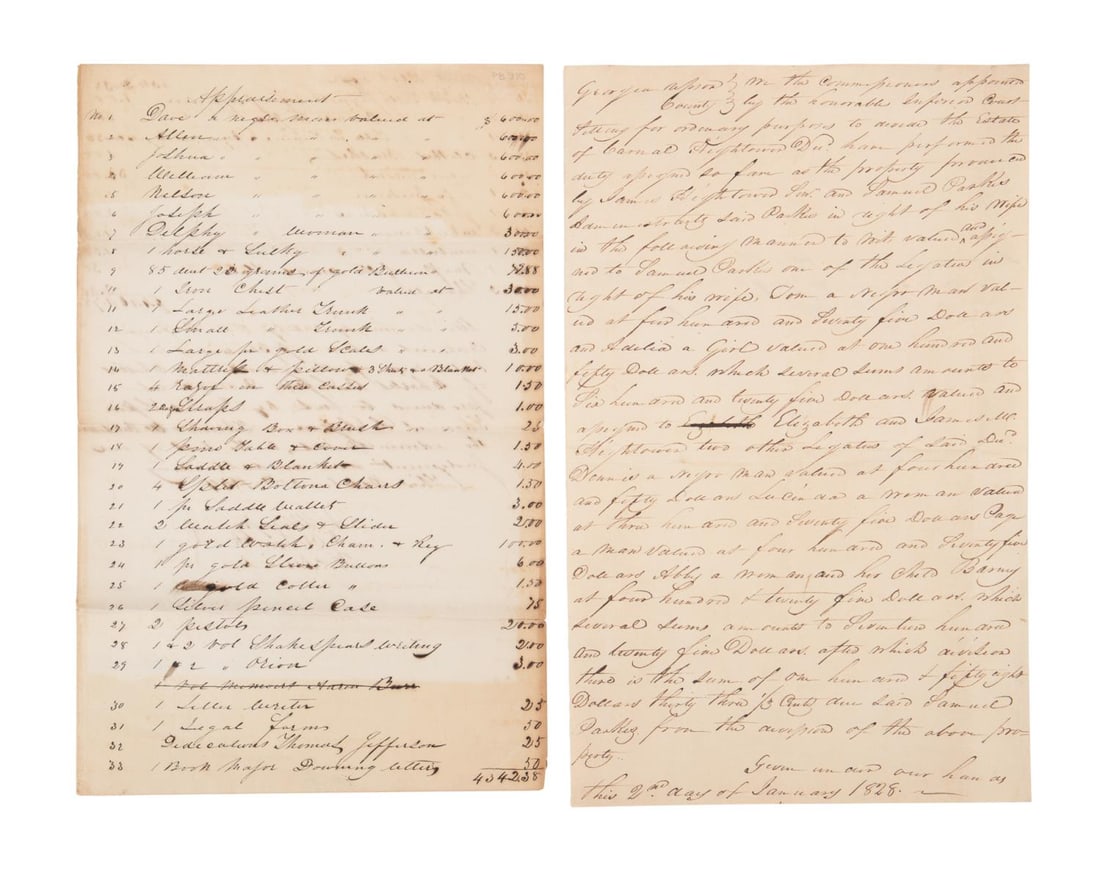 Appraisement
No. 1 Dave a negro man valued at $ 600.00
2 Allen " " " " 600.00
3 Joshua " " " " 600.00
4 William " " " " 600.00
5 Nelson " " " " 600.00
6 Joseph " " " " 600.00
7 Delphy " Woman " 300.00
8 1 horse & Sulky " 150.00
9 85 dwt 20 grains of gold Bullion
10 1 Iron Chest valued at 30.00
11 1 Large Leather Trunk " " 15.00
12 1 Small " Trunk " 5.00
13 1 Large pr gold Scales " " 3.00
14 1 Mattress & pillow & 3 Sheets & Blanket 10.00
15 4 Razor in two cases 1.50
16 2 Straps 1.00
17 1 Shaving Box & Brush 25
18 1 pine Table & Cover 1.50
19 1 Saddle & Blanket 4.00
20 4 Split Bottom Chairs 1.50
21 1 pr Saddle Wallet 3.00
22 2 Watch Seals & Slider 2.00
23 1 gold Watch, Chain & Key 100.00
24 1 pr gold Sleeve Buttons 6.00
25 1 gold Coller " 1.50
26 1 Silver pencil Case 75
27 2 pistols 20.00
28 1 & 2 Vol Shakespears writing 2.00
29 1 & 2 " Orion 3.00
1 Vol Memoirs Aaron Burr
30 1 Letter Writer 25
31 1 Legal forms 50
32 Dedications Thomas Jefferson 25
33 1 Book Major Downing letters 50
4342.38
Georgia Upson } We the Commissioners appointed
County } by the honorable Inferior Court
Sitting for ordinary purposes to divide the Estate
of Carnal Hightower Decd have performed the
duty assigned so fare as the property produced
by James Hightower Senr and Samuel Parkes
Administrators said Parkes in right of his Wife
in the following manner to wit valued and assig-
ned to Samuel Parkes one of the Legatees in
right of his wife, Tom a Negro Man val-
ued at four hundred and Seventy five Dollars
and Adelia a Girl valued at one hundred and
fifty Dollars. which several sums amounts to
Six hundred and twenty five Dollars. Valued and
assigned to Elizabeth and James M.
Hightower two other Legatees of said Decd
Dennis a Negro Man valued at four hundred
and fifty Dollars Lucinda a woman valued
at three hundred and Seventy five Dollars Page
a man valued at four hundred and Seventy five
Dollars Abby a woman and her Child Barny
at four hundred & twenty five Dollars. which
several sums amounts to Seventeen hundred
and twenty five Dollars. after which division
there is the sum of one hundred & fifty eight
Dollars thirty three ⅓ Cents due said Samuel
Parkes from the division of the above pro-
perty.
Given under our hands
this 2nd day of January 1828.